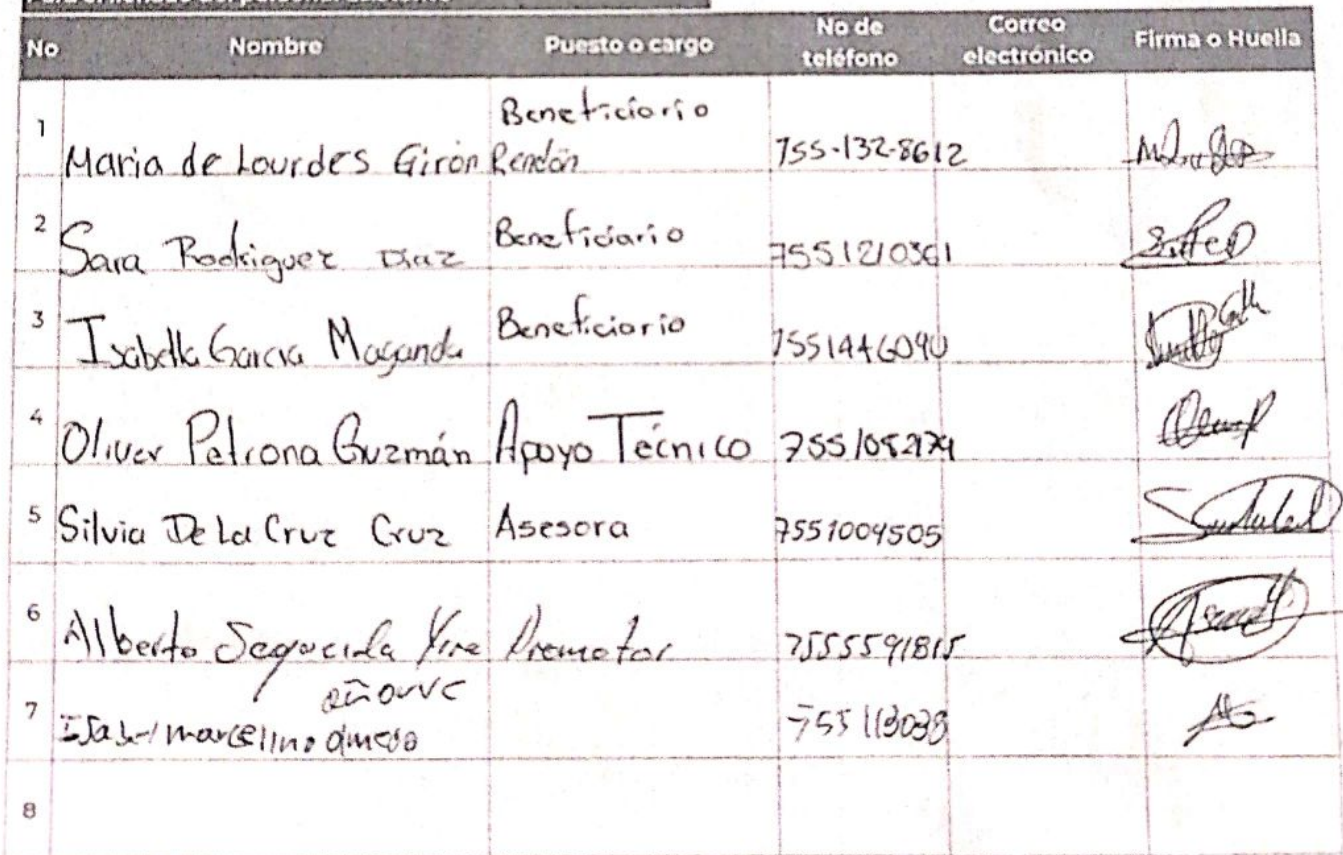 No Nombre Puesto o cargo No de teléfono Correo electrónico Firma o Huella
1 Maria de Lourdes Girón Rendón Beneficiario 755-132-8612
2 Sara Rodriguez Diaz Beneficiario 7551210361
3 Isabella Garcia Maganda Beneficiario 7551446090
4 Oliver Petrona Guzmán Apoyo Técnico
5 Silvia De La Cruz Cruz Asesora 7551004505
6 Alberto Promotor 7555591815
7 marcelino
8